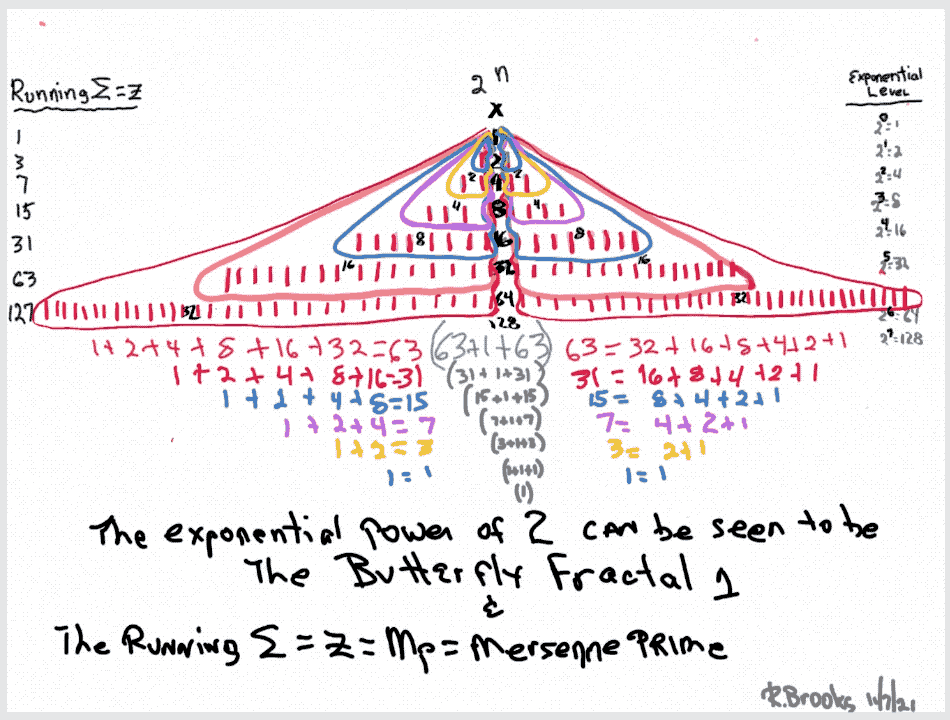 2 n
Running Σ=Z
Exponential
Level
x
1 1 2⁰=1
3 2 2¹=2
7 2 4 2 2²=4
15 4 8 4 2³=8
31 8 16 8 2⁴=16
63 16 32 16 2⁵=32
127 32 64 32 2⁶=64
128 2⁷=128
1+2+4+8+16+32=63 (63+1+63) 63=32+16+8+4+2+1
1+2+4+8+16=31 (31+1+31) 31=16+8+4+2+1
1+2+4+8=15 (15+1+15) 15=8+4+2+1
1+2+4=7 (7+1+7) 7=4+2+1
1+2=3 (3+1+3) 3=2+1
1=1 (1+1+1) 1=1
(1)
The exponential power of 2 can be seen to be
The Butterfly Fractal 1
&
The Running Σ=Z=Mp=Mersenne PRIME
R.Brooks 11/7/21